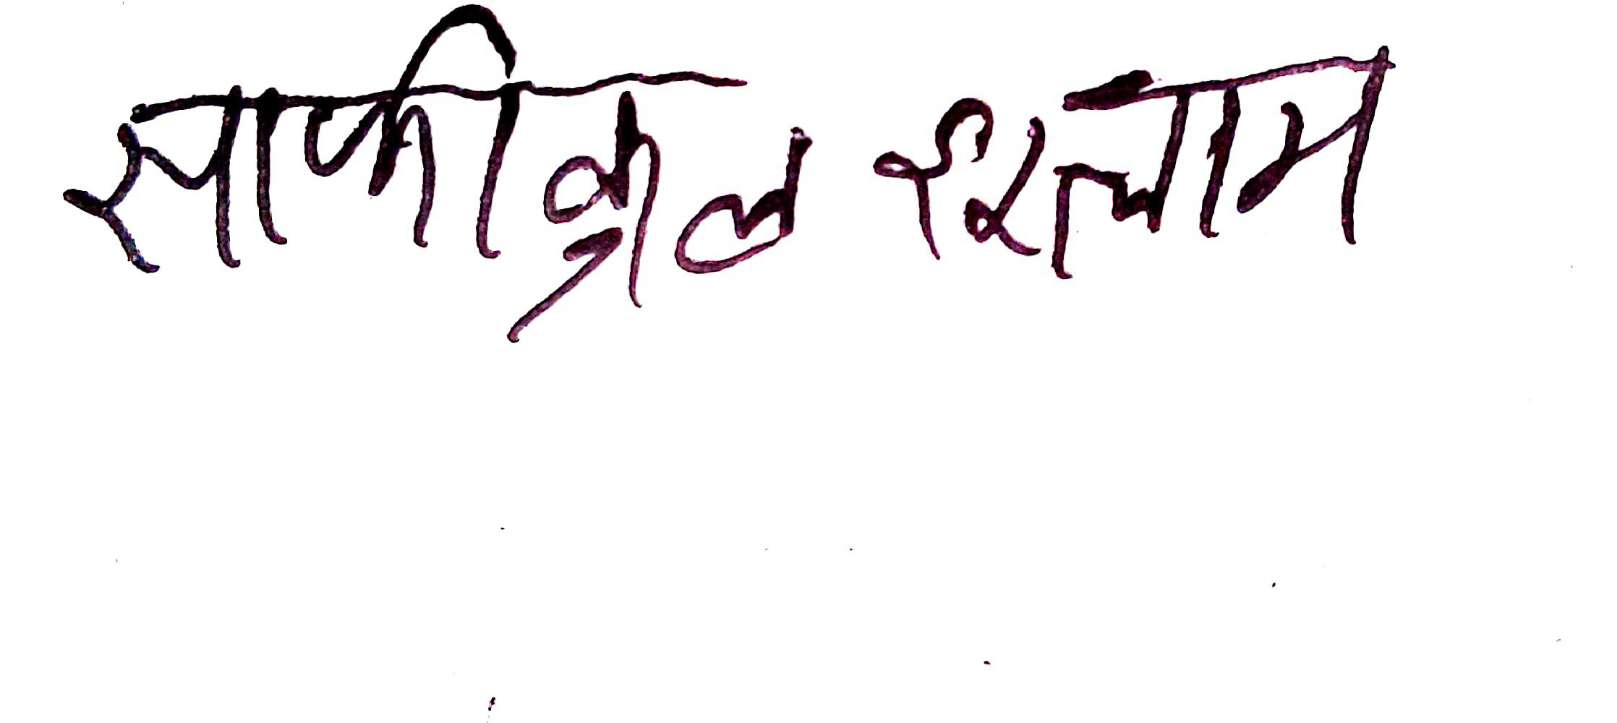 साफीकुल इस्लाम